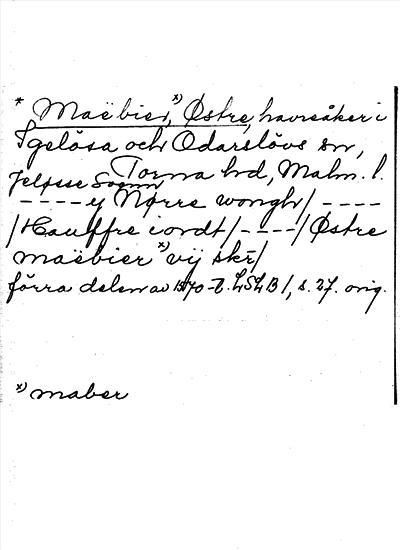 * Maëbier, x) Østre, havreåker i
Igelösa och Odarslövs sn,
Torna hd, Malm. l.
Jelsse Soenn
---- y Nørre wongh/ ----
/Hauffre iordt/ ----/ Østre
maëbier x) vij skr/
förra delen av 1570-t. LSLB/, s. 27. orig.
x) maber